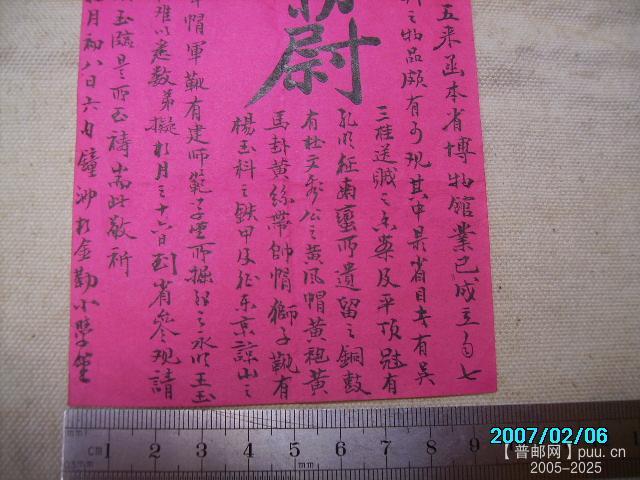 五来函本省博物館業已成立自七
之物品頗有可观其中最省目者有吴
三桂送贼之毒藥及平頂冠有
孔明征南蛮所遺留之銅鼓
有杜文秀公之黄风帽黄袍黄
馬卦黄絲带帥帽獅子靴有
楊玉科之鉄甲及征东京諒山之
尉
軍帽軍靴有建师範学堂所掘起之永明王玉
难以悉数弟擬於月之十六日到省參观請
玉臨是所至祷耑此敬祈
月初八日六句鐘泐於金勒小學堂
mm
cm
0.5mm
1 2 3 4 5 6 7 8 9
2007/02/06
【普邮网】puu.cn
2005-2025